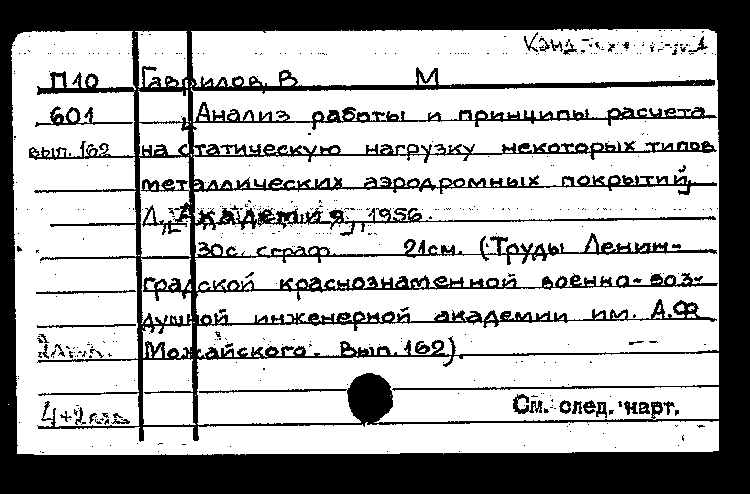 П10 Гаврилов, В М
601 Анализ работы и принципы расчета
вып. 162 на статическую нагрузку некоторых типов
металлических аэродромных покрытий,
Л., "Академия", 1956.
30с. с граф. 21см. (Труды Ленин-
градской краснознаменной военно-воз-
душной инженерной академии им. А.Ф
Можайского. Вып. 162).
См. след. карт.